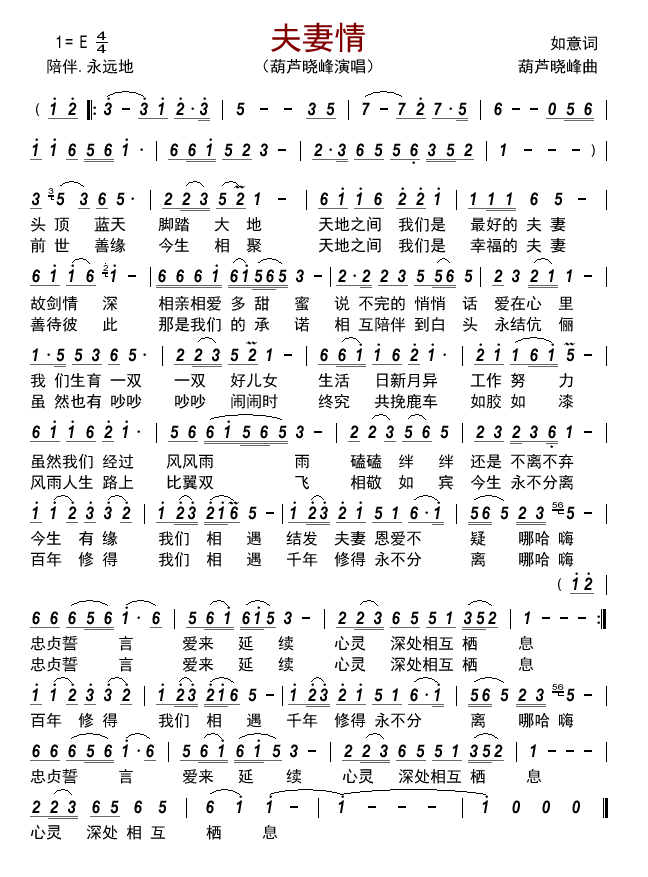 夫妻情
1= E 4/4 如意词
陪伴.永远地 （葫芦晓峰演唱） 葫芦晓峰曲
( 1 2 |: 3 - 3 1 2 · 3 | 5 - - 3 5 | 7 - 7 2 7 · 5 | 6 - - 0 5 6 |
1 1 6 5 6 1 · | 6 6 1 5 2 3 - | 2 · 3 6 5 5 6 3 5 2 | 1 - - - ) |
3 3 5 3 6 5 · | 2 2 3 5 2 1 - | 6 1 1 6 2 2 1 | 1 1 1 6 5 - |
头 顶 蓝天 脚踏 大 地 天地之间 我们是 最好的 夫 妻
前 世 善缘 今生 相 聚 天地之间 我们是 幸福的 夫 妻
6 1 1 6 2 1 - | 6 6 6 1 6 1 5 6 5 3 - | 2 · 2 2 3 5 5 5 6 5 | 2 3 2 1 1 - |
故剑情 深 相亲相爱 多 甜 蜜 说 不完的 悄悄 话 爱在心 里
善待彼 此 那是我们 的 承 诺 相 互陪伴 到白 头 永结伉 俪
1 · 5 5 3 6 5 · | 2 2 3 5 2 1 - | 6 6 1 1 6 2 1 · | 2 1 1 6 1 5 - |
我 们生育 一双 一双 好儿女 生活 日新月异 工作 努 力
虽 然也有 吵吵 吵吵 闹闹时 终究 共挽鹿车 如胶 如 漆
6 1 1 6 2 1 · | 5 6 6 1 5 6 5 3 - | 2 2 3 5 6 5 | 2 3 2 3 6 1 - |
虽然我们 经过 风风雨 雨 磕磕 绊 绊 还是 不离不弃
风雨人生 路上 比翼双 飞 相敬 如 宾 今生 永不分离
1 1 2 3 3 2 | 1 2 3 2 1 6 5 - | 1 2 3 2 1 5 1 6 · 1 | 5 6 5 2 3 56 5 - |
今生 有 缘 我们 相 遇 结发 夫妻 恩爱不 疑 哪哈 嗨
百年 修 得 我们 相 遇 千年 修得 永不分 离 哪哈 嗨
( 1 2
6 6 6 5 6 1 · 6 | 5 6 1 6 1 5 3 - | 2 2 3 6 5 5 1 3 5 2 | 1 - - - :|
忠贞誓 言 爱来 延 续 心灵 深处相互 栖 息
忠贞誓 言 爱来 延 续 心灵 深处相互 栖 息
1 1 2 3 3 2 | 1 2 3 2 1 6 5 - | 1 2 3 2 1 5 1 6 · 1 | 5 6 5 2 3 56 5 - |
百年 修 得 我们 相 遇 千年 修得 永不分 离 哪哈 嗨
6 6 6 5 6 1 · 6 | 5 6 1 6 1 5 3 - | 2 2 3 6 5 5 1 3 5 2 | 1 - - - |
忠贞誓 言 爱来 延 续 心灵 深处相互 栖 息
2 2 3 6 5 6 5 | 6 1 1 - | 1 - - - | 1 0 0 0 ‖
心灵 深处 相 互 栖 息